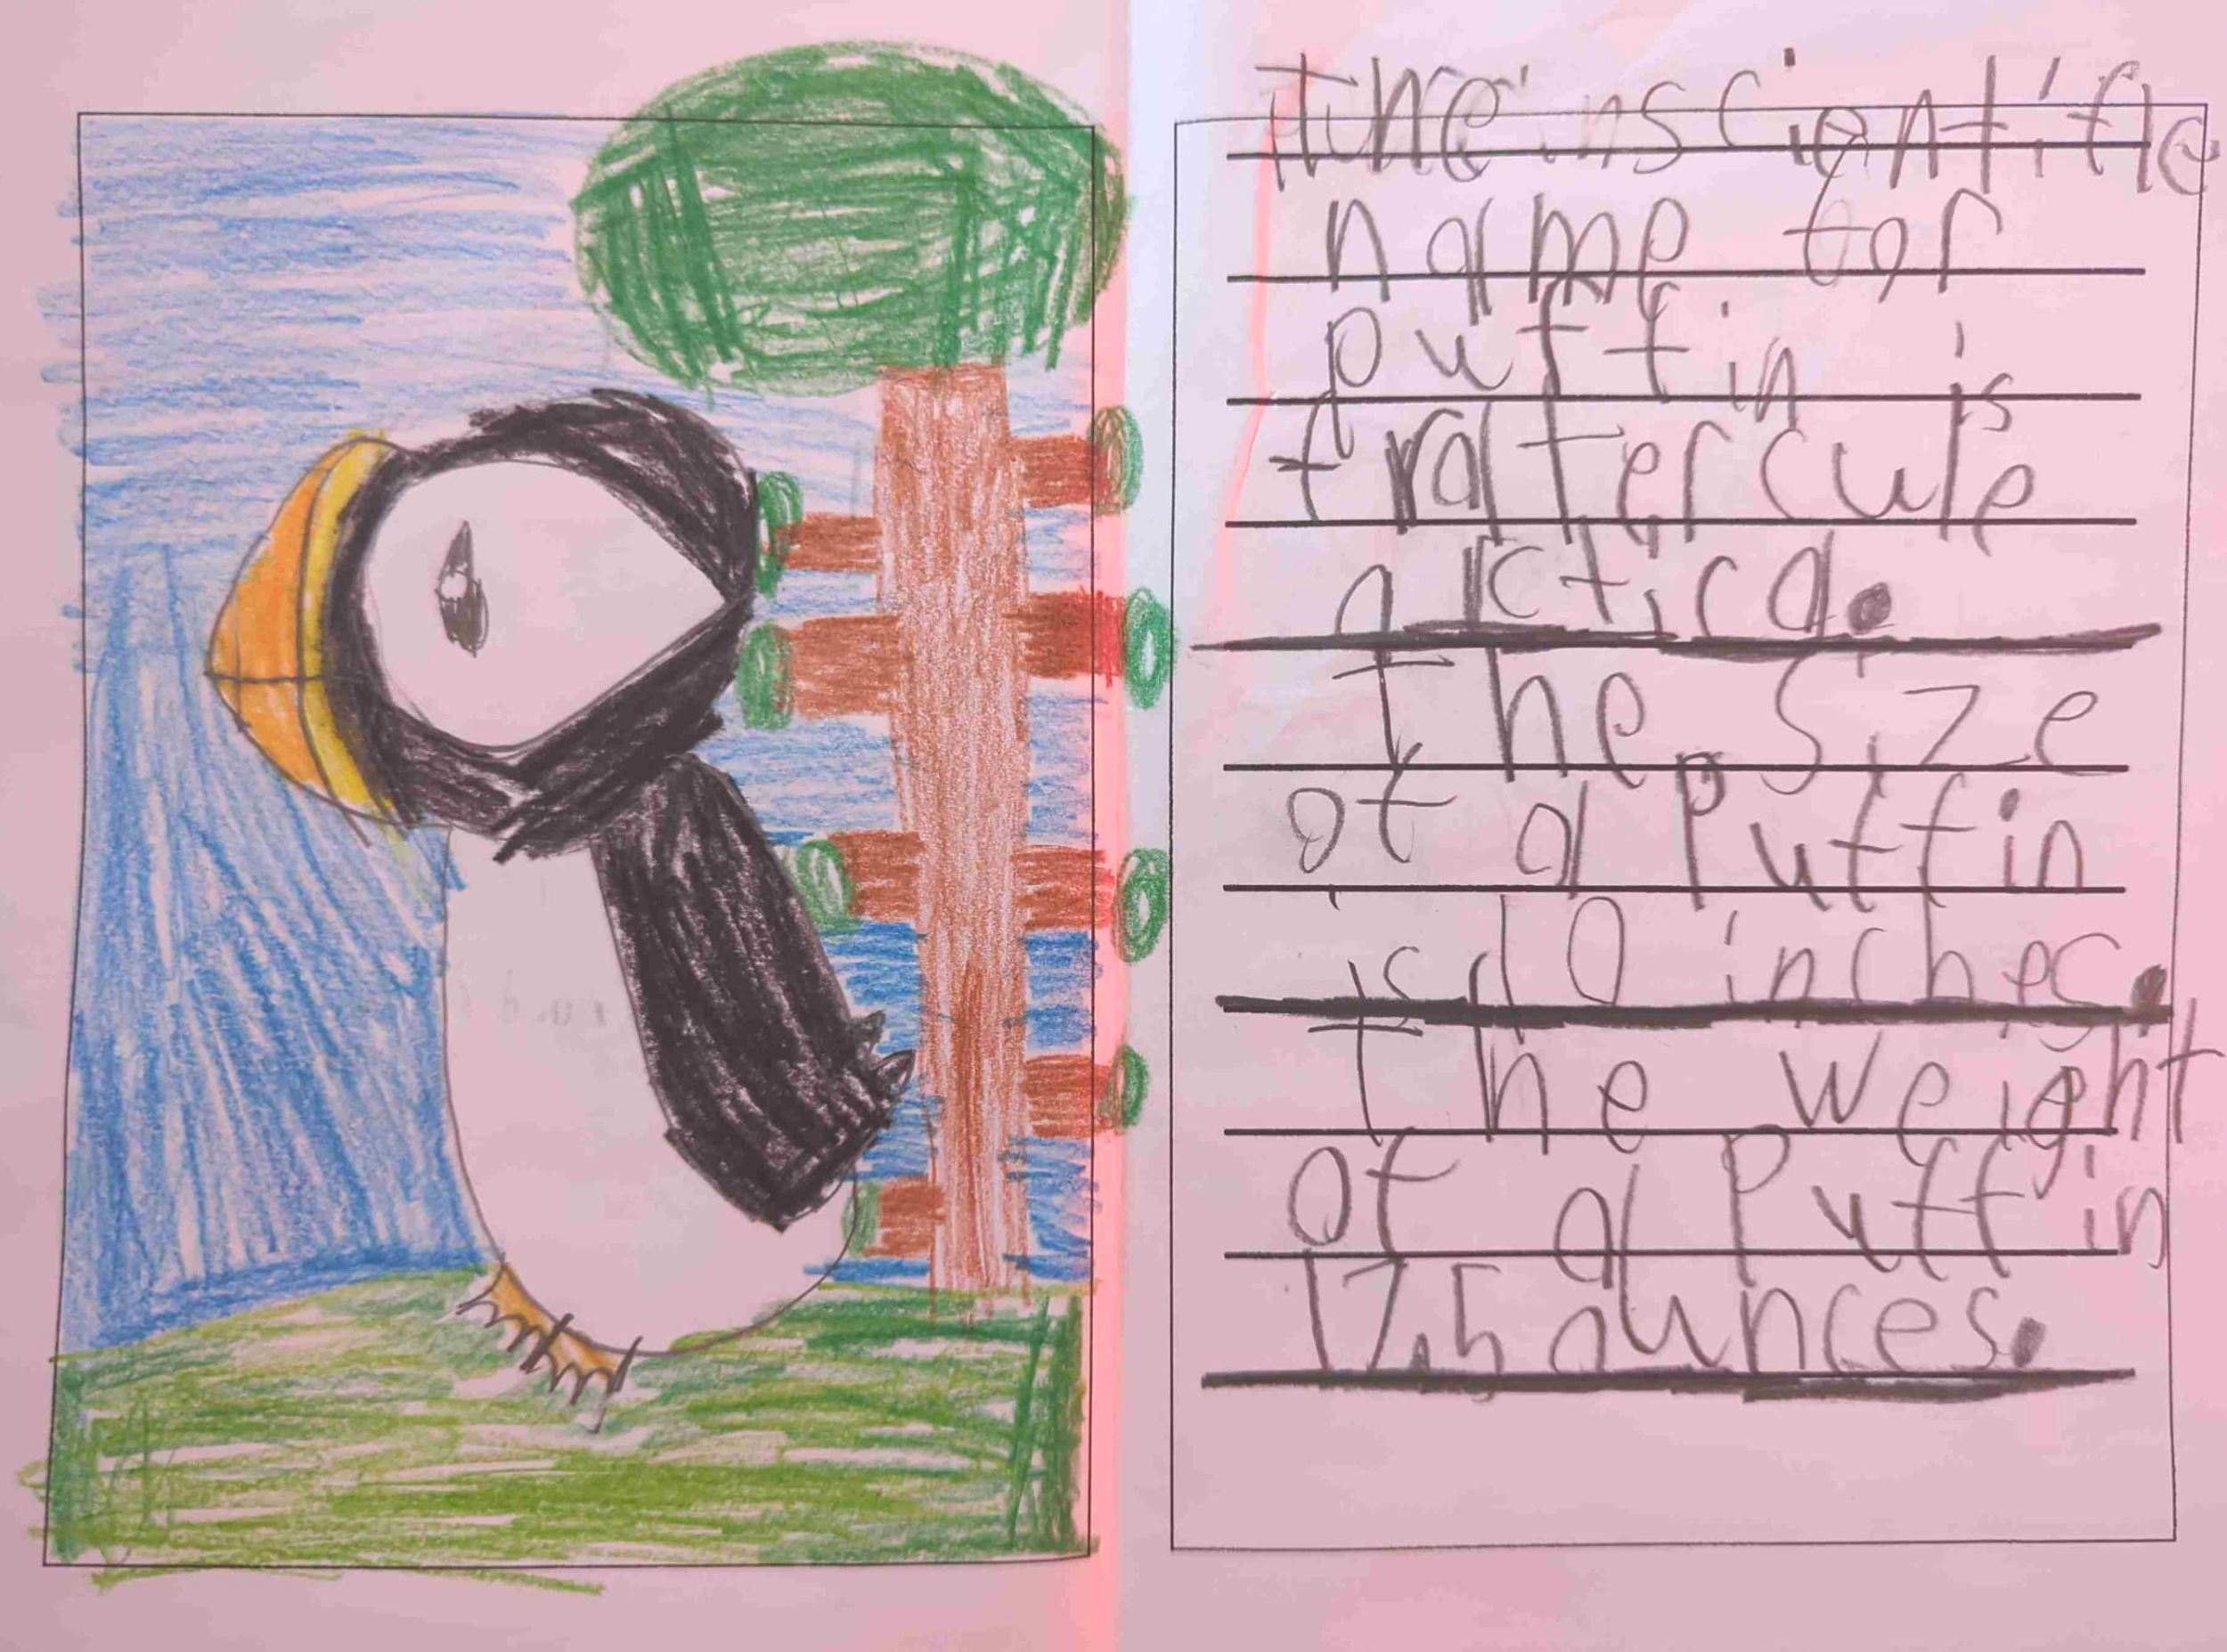 The scientific
name for
puffin is
fratercule
arctica.
the size
of a puffin
is 10 inches.
the weight
of a puffin
17.5 ounces.